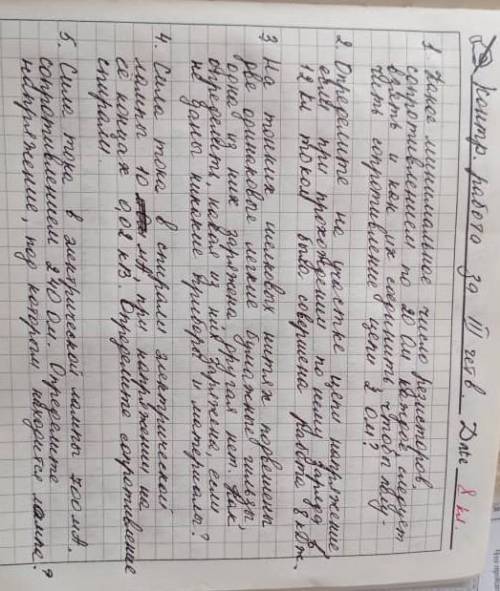 контр. работа за III четв. Date 8 кл.
1. Какое минимальное число резисторов,
сопротивлением по 20 Ом каждое, следует
взять и как их соединить, чтобы полу-
чить сопротивление цепи 2 Ом?
2. Определите на участке цепи напряжение
если при прохождении по нему заряда в
12 Кл током была совершена работа 8 кДж.
3. На тонких шелковых нитях подвешены
две одинаковые легкие бумажные гильзы,
одна из них заряжена другая нет. Как
определить, какая из них заряжена, если
не даны никакие приборы и материалы?
4. Сила тока в спирали электрической
лампы 10 мА, при напряжении на
её концах 0,02 кВ. Определите сопротивление
спирали.
5. Сила тока в электрической лампы 700 мА.
сопротивлением 240 Ом. Определите
напряжение, под которым находится лампа?